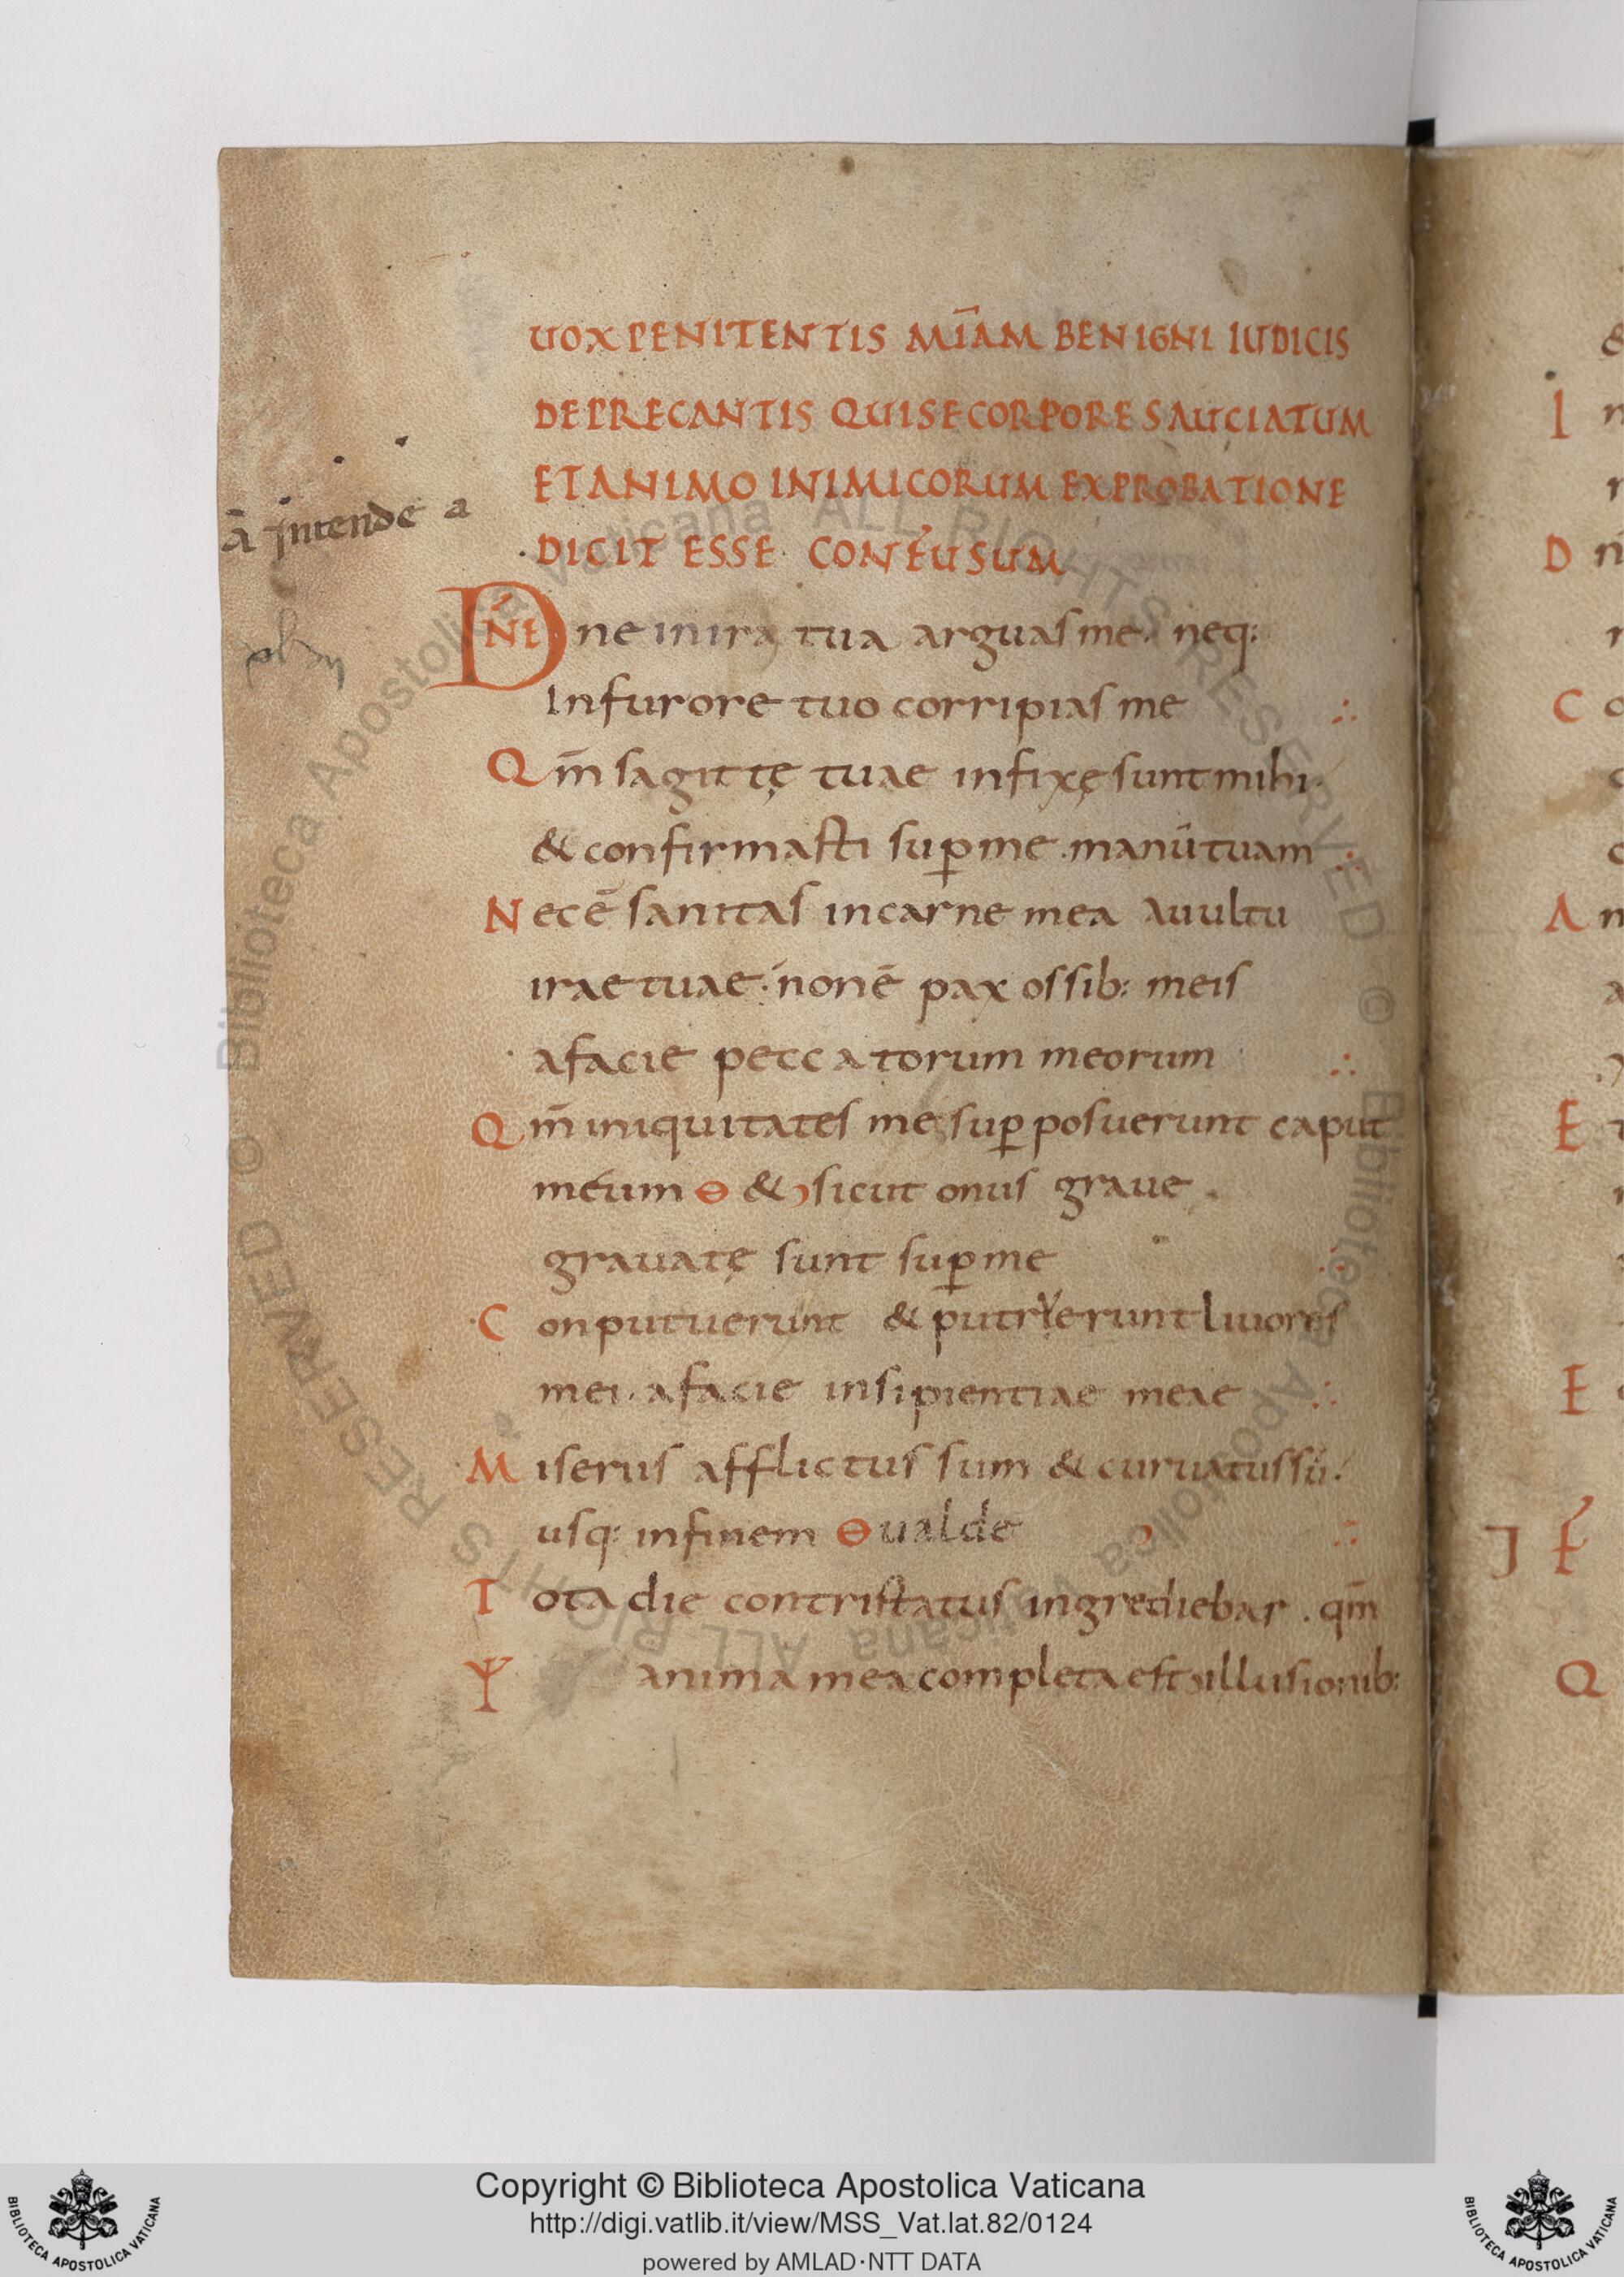 UOX PENITENTIS MĪAM BENIGNI IUDICIS
DEPRECANTIS QUI SE CORPORE SAUCIATUM
ET ANIMO INIMICORUM EXPROBATIONE
DICIT ESSE CONFUSUM
ā intende a
DN̄E ne in ira tua arguas me. neq:
In furore tuo corripias me ∴
Qm̄ sagittę tuae infixę sunt mihi.
& confirmasti sup̱ me. manū tuam ∴
Nec ē sanitas in carne mea a uultu
irae tuae. non ē pax ossib: meis
a facie peccatorum meorum ∴
Qm̄ iniquitates me sup̱posuerunt caput
meum ɵ & sicut onus graue.
grauatę sunt sup̱ me ∴
Conputuerunt & putryerunt liuores
mei. a facie insipientiae meae ∴
Miserus afflictus sum & curuatus sū.
usq: in finem ɵ ualde ∴
Tota die contristatus ingrediebar. qm̄
anima mea completa est illusionib:
I
D
C
A
E
E
J E
Q
© Biblioteca Apostolica Vaticana ALL RIGHTS RESERVED © Biblioteca Apostolica Vaticana ALL RIGHTS RESERVED
Copyright © Biblioteca Apostolica Vaticana
http://digi.vatlib.it/view/MSS_Vat.lat.82/0124
powered by AMLAD·NTT DATA
BIBLIOTECA APOSTOLICA VATICANA
BIBLIOTECA APOSTOLICA VATICANA